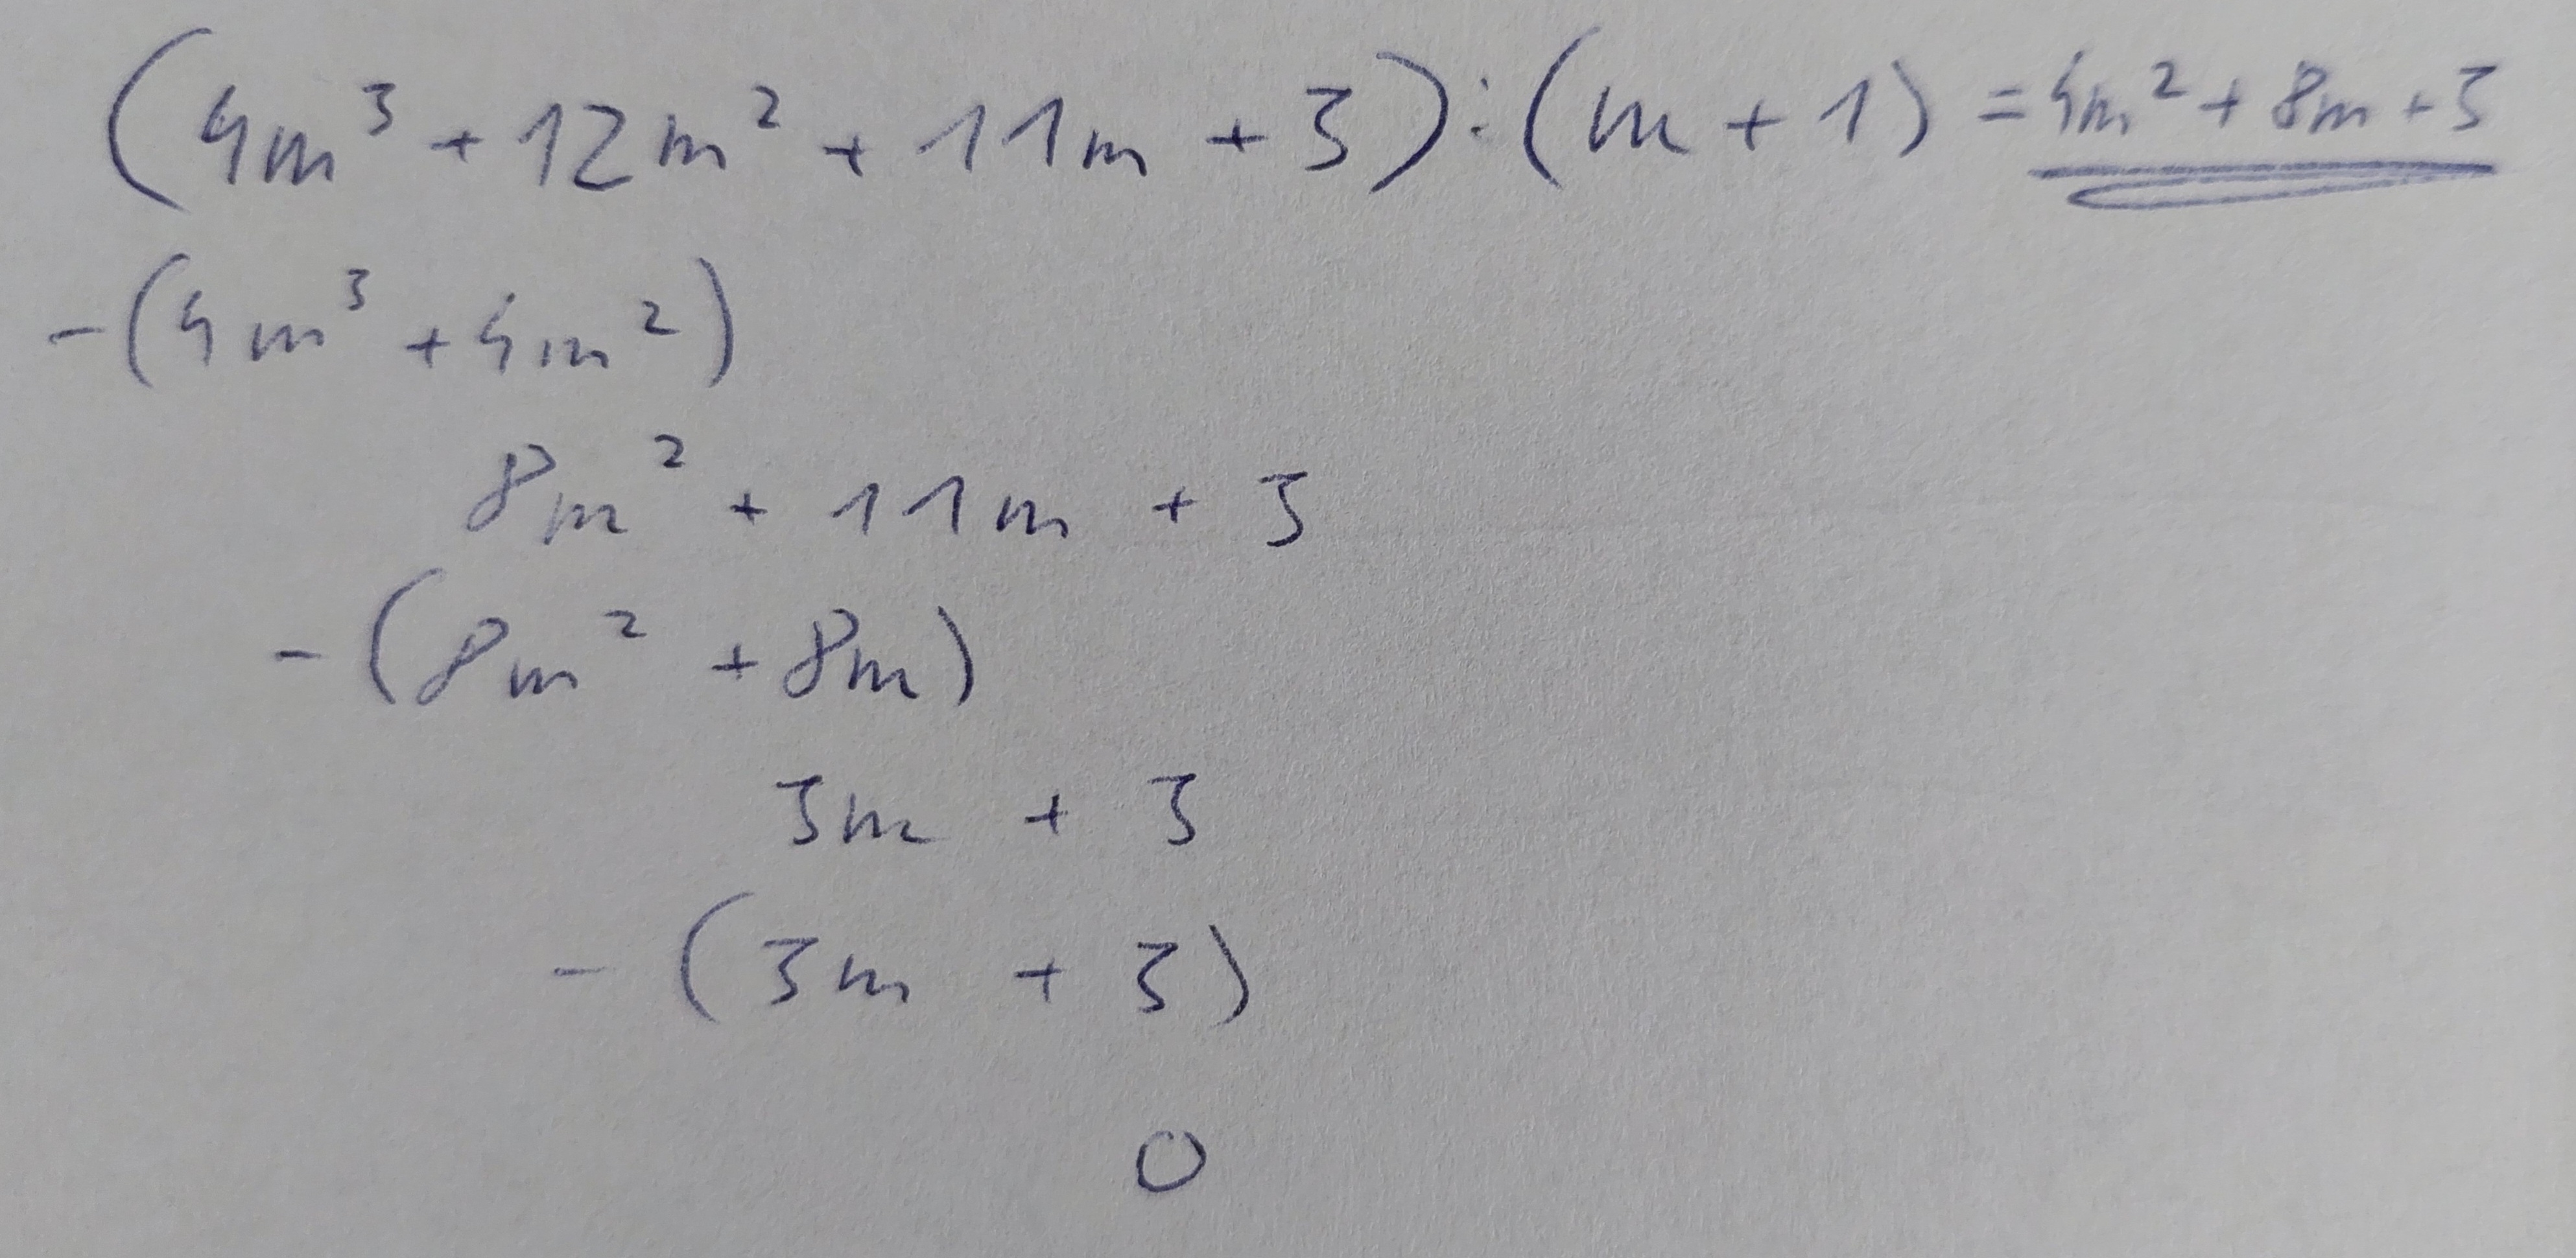 (4m³ + 12m² + 11m + 3) : (m + 1) = 4m² + 8m + 3
-(4m³ + 4m²)
8m² + 11m + 3
-(8m² + 8m)
3m + 3
-(3m + 3)
0